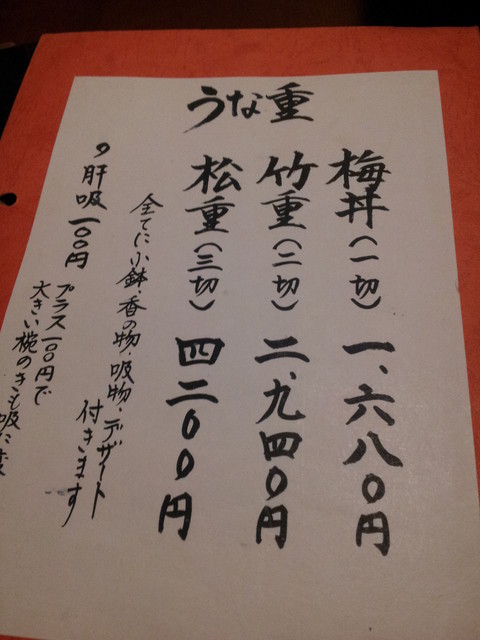 うな重
梅丼(一切)一、六八〇円
竹重(二切)二、九四〇円
松重(三切)四二〇〇円
全てに小鉢・香の物・吸物・デザート
付きます
肝吸一〇〇円
プラス一〇〇円で
大きい椀のきも吸に